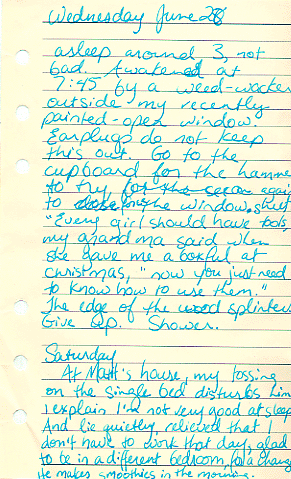 Wednesday June 28
asleep around 3, not
bad. Awakened at
7:45 by a weed-wacker
outside my recently
painted-open window.
Earplugs do not keep
this out. Go to the
cupboard for the hammer
to try for the again
to force the window shut.
"Every girl should have tools,"
my grandma said when
she gave me a boxful at
christmas, "now you just need
to know how to use them."
The edge of the wood splinters.
Give up. Shower.
Saturday
At Matt's house, my tossing
on the single bed disturbs him.
I explain I'm not very good at sleep
And lie quietly, relieved that I
don't have to work that day, glad
to be in a different bedroom for a change
He makes smoothies in the morning.